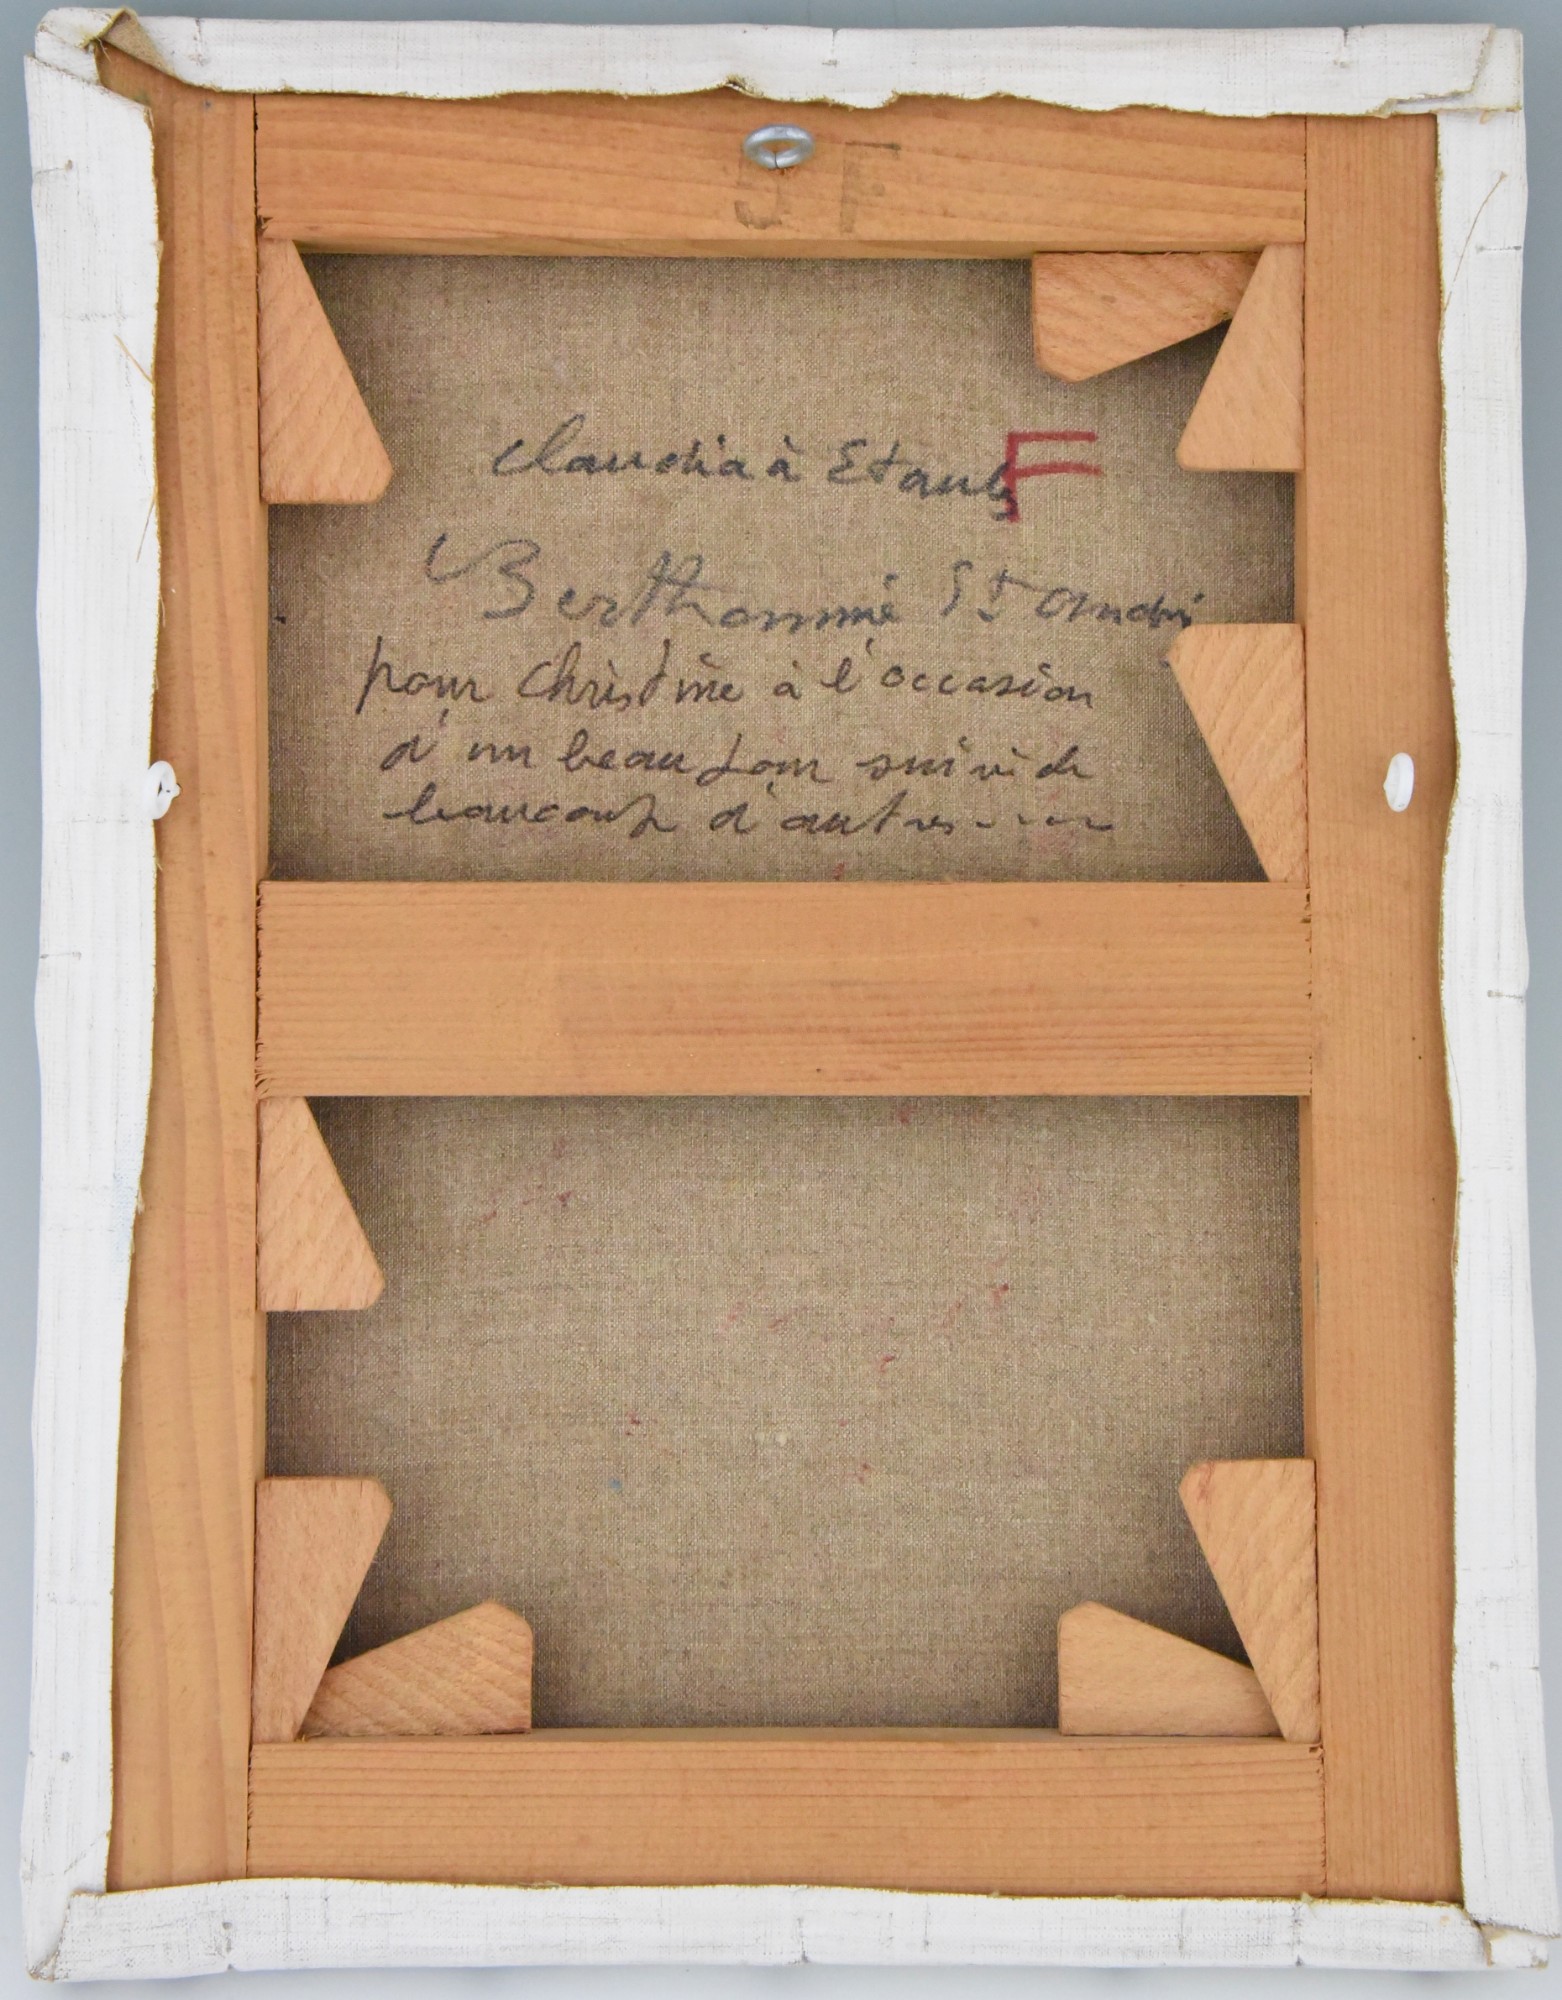 5F
Claudia à Etaules
F
Berthommé St André
pour Christine à l'occasion
d'un beau jour suivi de
beaucoup d'autres----